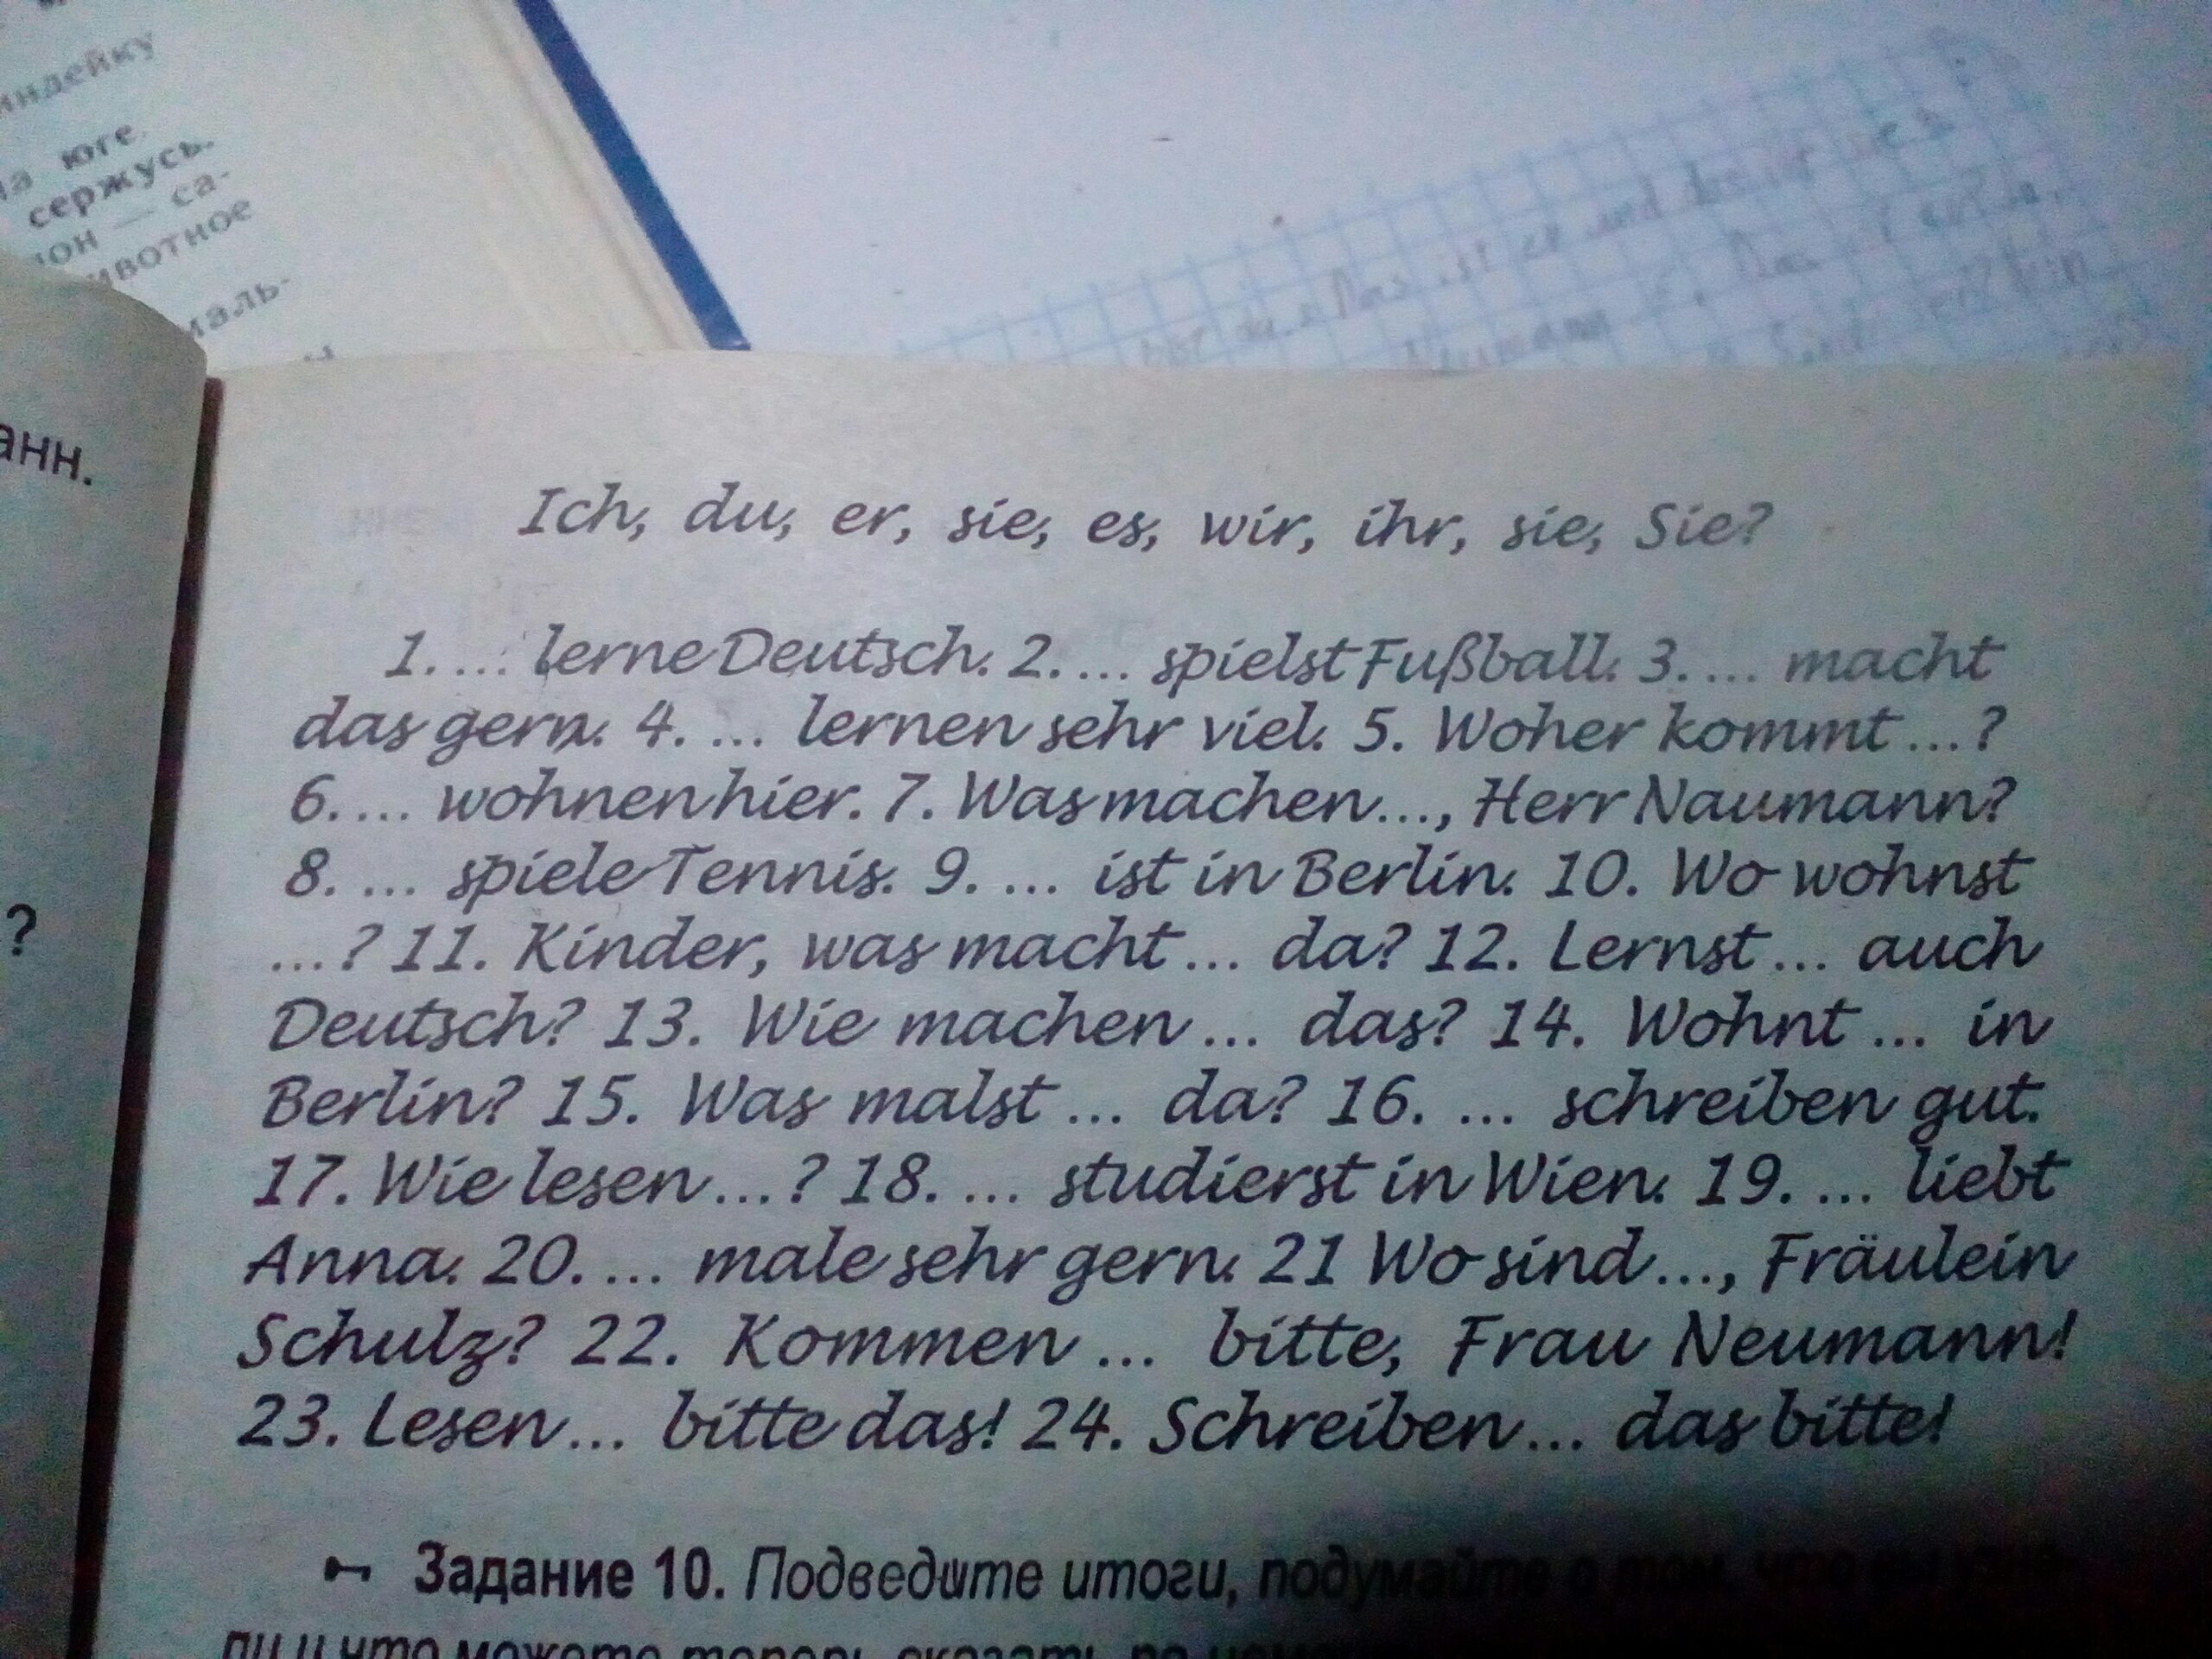 индейку
на юге.
сержусь.
са-
животное
маль-
анн.
?
Ich, du, er, sie, es, wir, ihr, sie, Sie?
1. ... lerne Deutsch. 2. ... spielst Fußball. 3. ... macht
das gern. 4. ... lernen sehr viel. 5. Woher kommt ...?
6. ... wohnen hier. 7. Was machen ..., Herr Naumann?
8. ... spiele Tennis. 9. ... ist in Berlin. 10. Wo wohnst
...? 11. Kinder, was macht ... da? 12. Lernst ... auch
Deutsch? 13. Wie machen ... das? 14. Wohnt ... in
Berlin? 15. Was malst ... da? 16. ... schreiben gut.
17. Wie lesen ...? 18. ... studierst in Wien. 19. ... liebt
Anna. 20. ... male sehr gern. 21 Wo sind ..., Fräulein
Schulz? 22. Kommen ... bitte, Frau Neumann!
23. Lesen ... bitte das! 24. Schreiben ... das bitte!
Задание 10. Подведите итоги, подумайте о том, что вы
ли и что можете теперь сказать